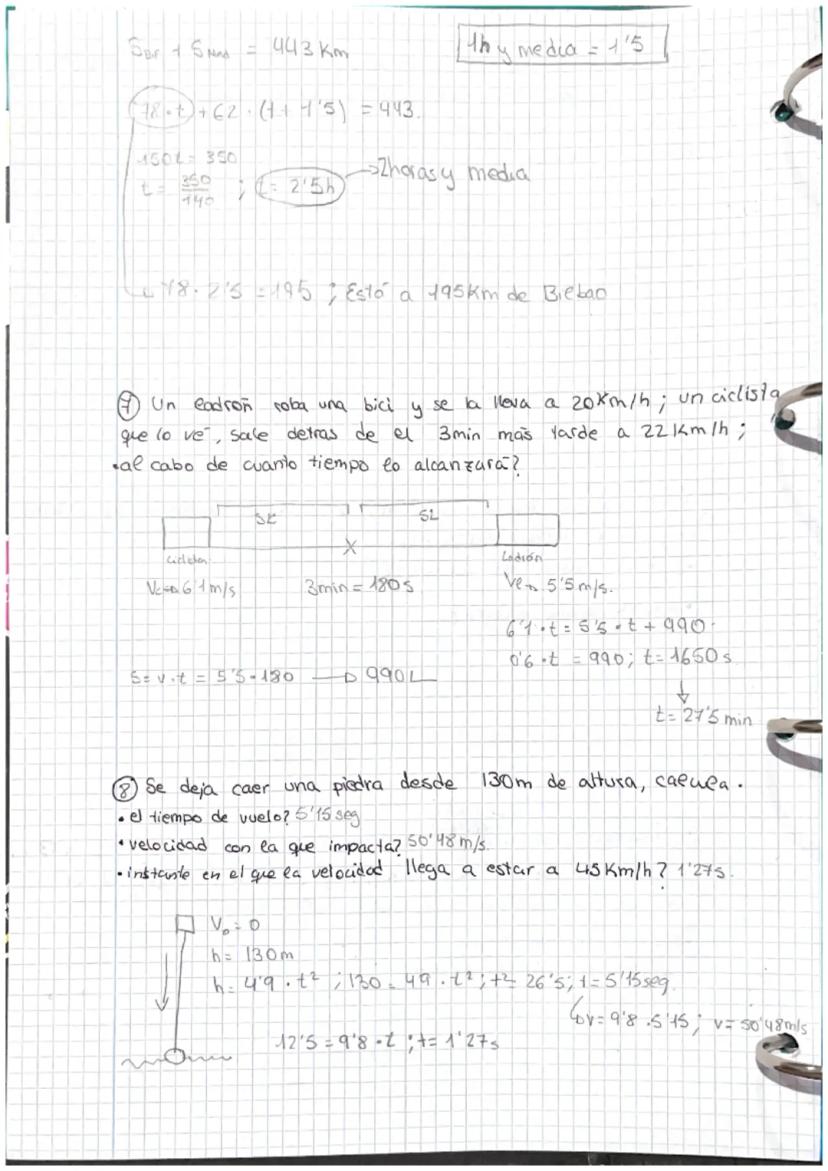 SBil + SMad = 443 Km
1h y media = 1'5
78·t + 62·(t+1'5) = 443.
150t = 350
t = 350/140 ; t = 2'5h → 2horas y media
↳ 78·2'5 = 195 ; Está a 195Km de Bilbao
⑦ Un ladrón roba una bici y se la lleva a 20Km/h ; un ciclista
que lo ve, sale detras de el 3min más tarde a 22Km/h ;
•al cabo de cuanto tiempo lo alcanzará?
SC SL
X
ciclista Ladrón
Vc→ 6'1m/s 3min = 180s Ve→ 5'5m/s.
6'1·t = 5'5·t + 990.
0'6·t = 990; t=1650s
S = v·t = 5'5·180 → 990
↓
t = 27'5 min
⑧ Se deja caer una piedra desde 130m de altura, calcula.
• el tiempo de vuelo? 5'15seg
• velocidad con la que impacta? 50'48m/s.
• instante en el que la velocidad llega a estar a 45Km/h? 1'27s.
V₀ = 0
h = 130m
h = 4'9·t² ; 130 = 49·t² ; t² = 26'5 ; t = 5'15seg
↳ v = 9'8·5'15 ; v = 50'48m/s
12'5 = 9'8·t ; t = 1'27s